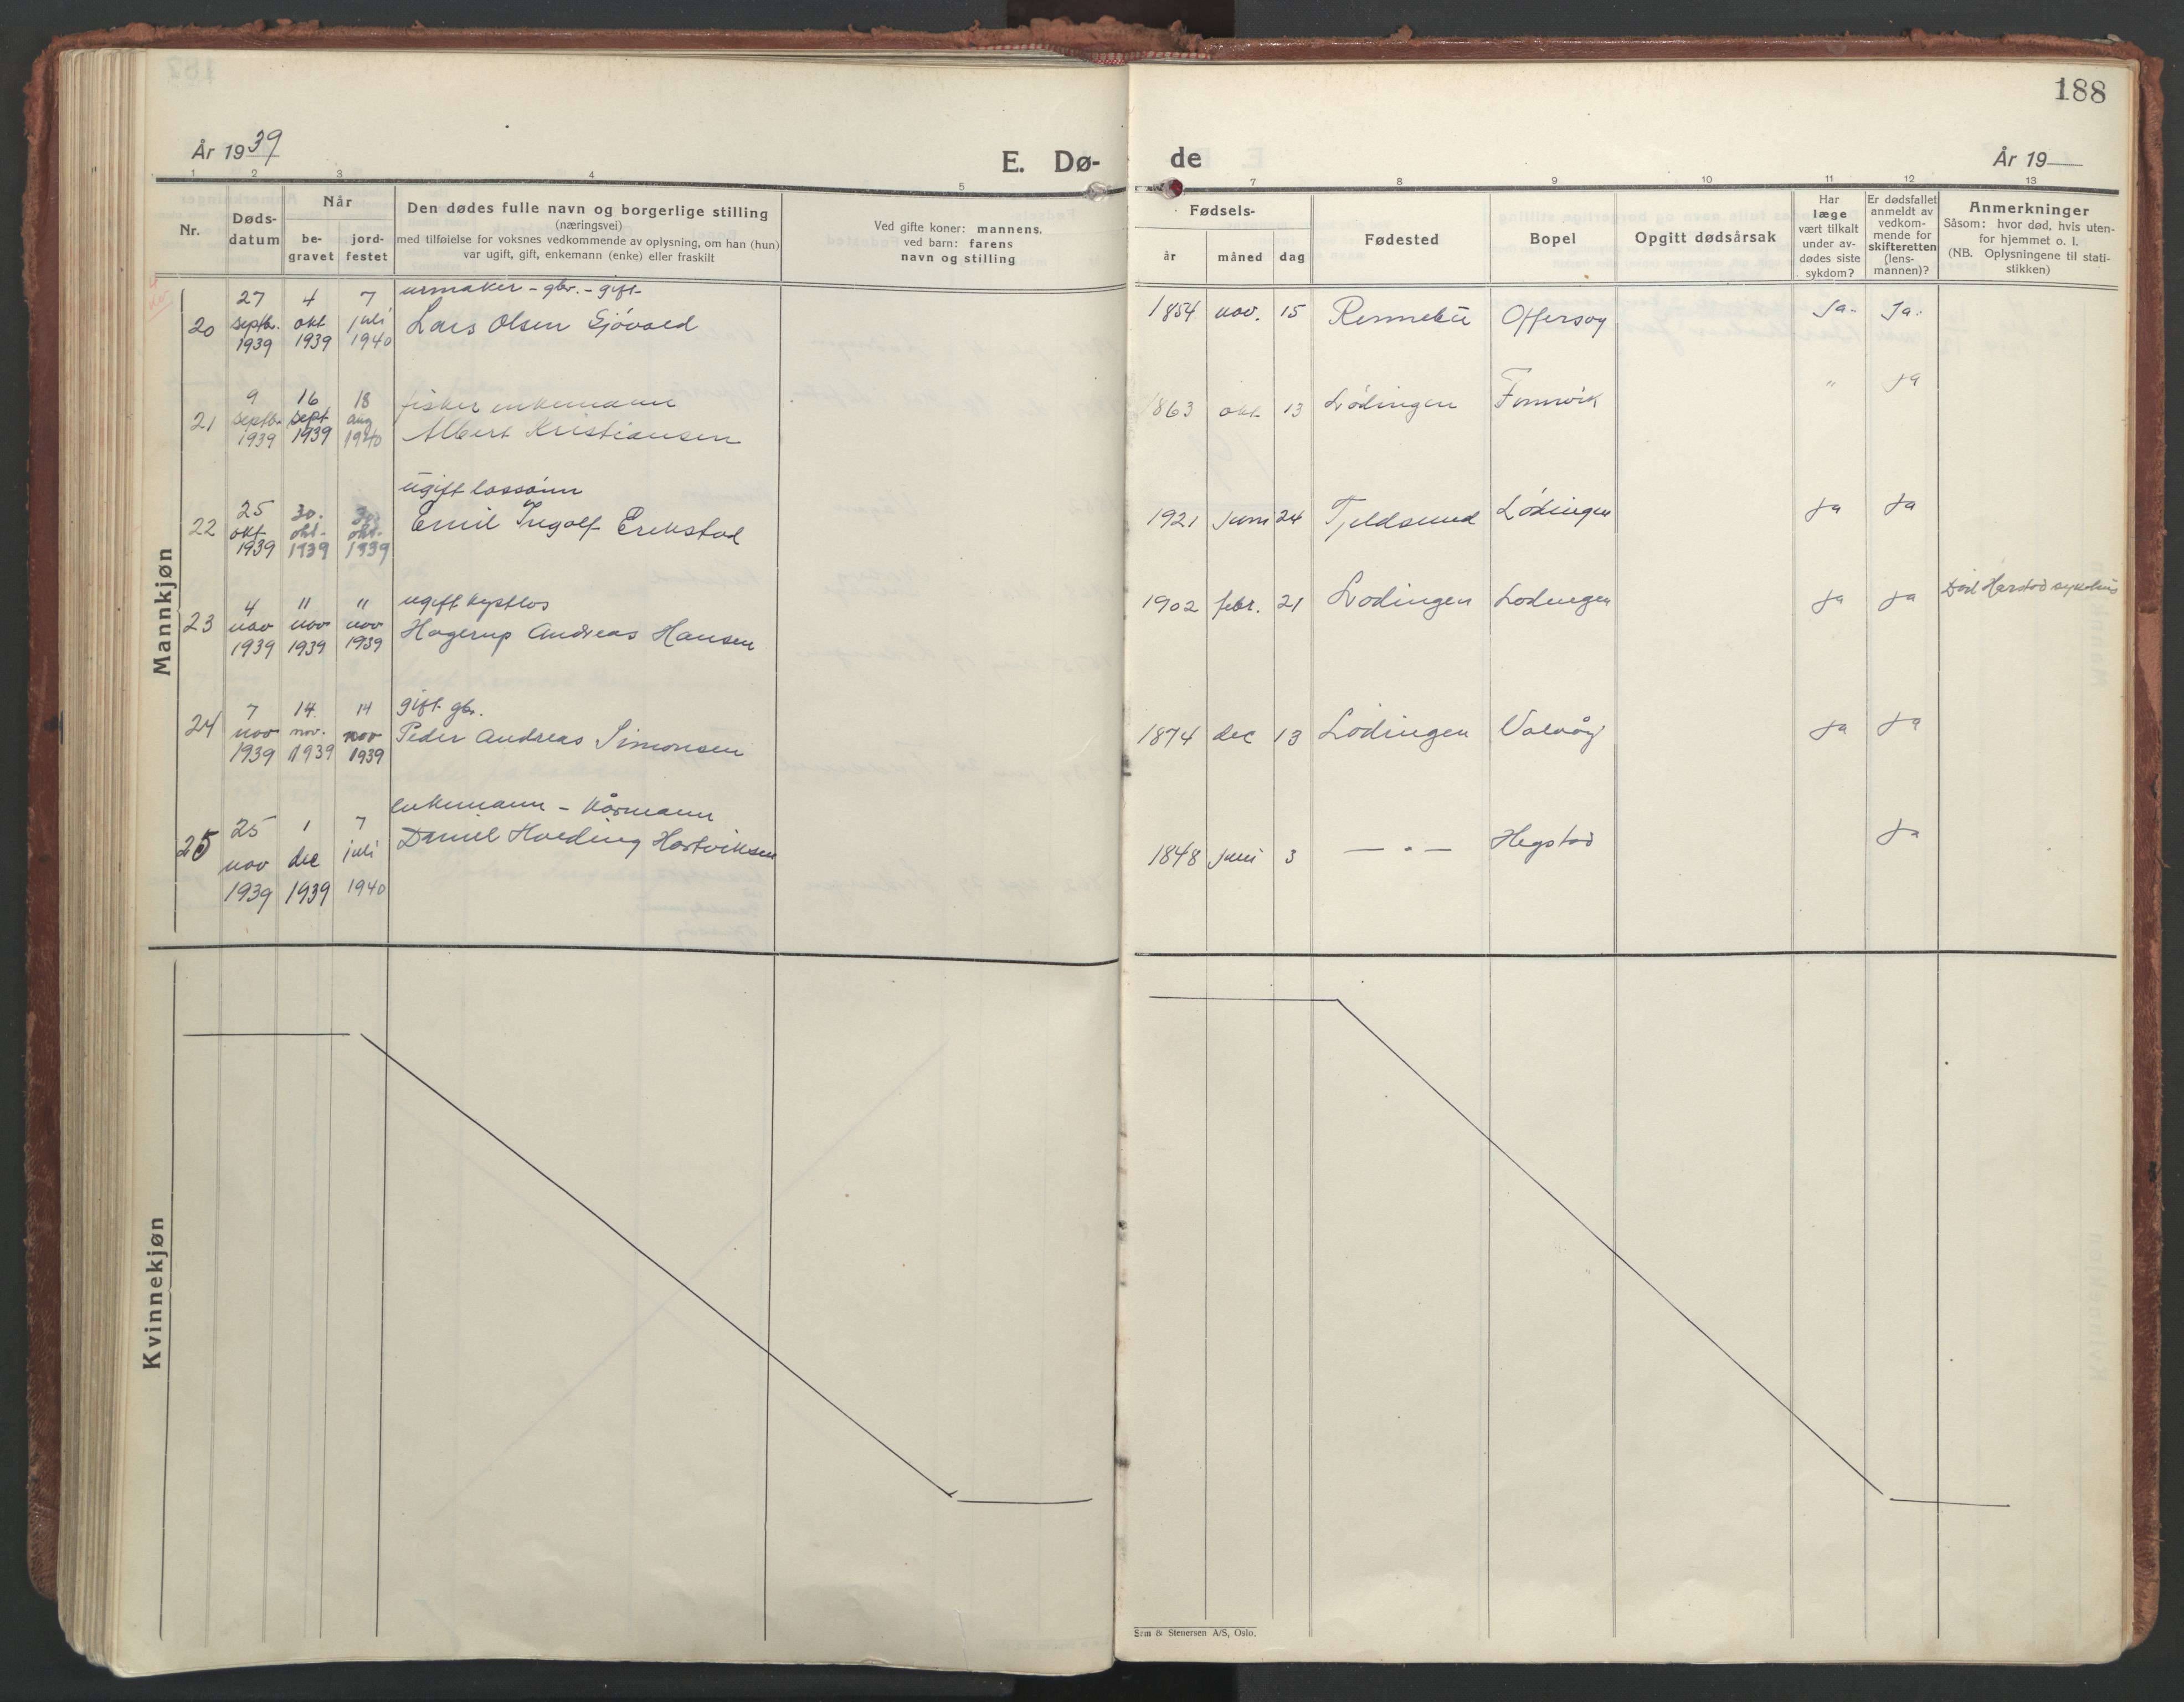 188
År 1939
E. Dø-
de
År 19
1 2 3 4 5
7 8 9 10 11 12 13
Nr.
Døds-
datum
Når
be-
gravet
jord-
festet
Den dødes fulle navn og borgerlige stilling
(næringsvei)
med tilføielse for voksnes vedkommende av oplysning, om han (hun)
var ugift, gift, enkemann (enke) eller fraskilt
Ved gifte koner: mannens,
ved barn: farens
navn og stilling
Fødsels-
år
måned
dag
Fødested
Bopel
Opgitt dødsårsak
Har
læge
vært tilkalt
under av-
dødes siste
sykdom?
Er dødsfallet
anmeldt av
vedkom-
mende for
skifteretten
(lens-
mannen)?
Anmerkninger
Såsom: hvor død, hvis uten-
for hjemmet o. l.
(NB. Oplysningene til stati-
stikken)
Mannkjøn
urmaker - gbr. - gift
20 27 septb. 1939 4 okt 1939 7 juli 1940 Lars Olsen Sjövold 1854 nov. 15 Rennebu Offersøy Ja. Ja.
fisker enkemann
21 9 septb. 1939 16 sept 1939 18 aug 1940 Albert Kristiansen 1863 okt. 13 Lødingen " Ja
ugift
22 25 okt 1939 30. okt. 1939 30. okt. 1939 Emil Ingolf Erikstad 1921 juni 24 Tjeldsund Lødingen Ja Ja
ugift
23 4 nov 1939 11 nov 1939 11 nov 1939 Hagerup Andreas Hansen 1902 febr. 21 Lødingen Lødingen Ja Ja Död Harstad sykehus
gift gbr.
24 7 nov 1939 14 nov. 1939 14 nov 1939 Peder Andreas Simonsen 1874 dec 13 Lødingen Ja Ja
enkemann - kårmann
25 25 nov 1939 1 dec 1939 7 juli 1940 Daniel Hartviksen 1848 juni 3 — " — Hegstad Ja
Kvinnekjøn
Sem & Stenersen A/S, Oslo.